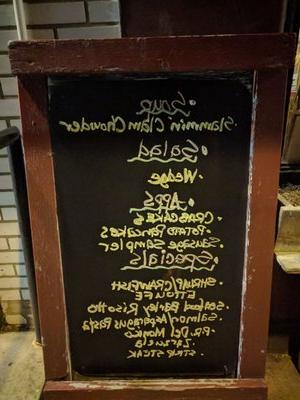 • Soup
• Slammin Clam Chowder
• Salad
• Wedge
• Apps
• CRABCAKES
• POTATO PANCAKES
• Sausage Sampler
• Specials
• SHRIMP/CRAWFISH
ETTOUFE
• Seafood Barley Risotto
• Salmon/Asparagus Pasta
• P.R. Del Monico
ZARZUELA
• STRIP STEAK